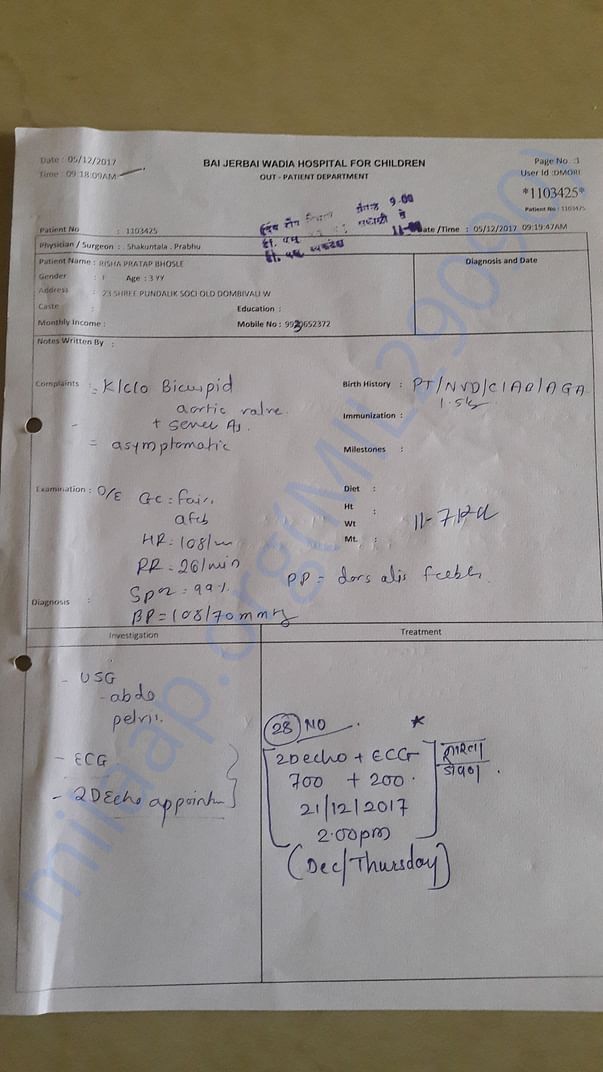 Date : 05/12/2017
Time : 09:18:09AM
BAI JERBAI WADIA HOSPITAL FOR CHILDREN
OUT - PATIENT DEPARTMENT
Page No. :1
User Id :DMORE
*1103425*
Patient No : 1103425
9.00
Patient No : 1103425
Date /Time : 05/12/2017 09:19:47AM
Physician / Surgeon : . Shakuntala . Prabhu
Patient Name : RISHA PRATAP BHOSLE
Diagnosis and Date
Gender : F Age : 3 YY
Address : 23 SHREE PUNDALIK SOCI OLD DOMBIVALI W
Caste : Education :
Monthly Income : Mobile No : 9930652372
Notes Written By :
Complaints : - K/c/o Bicuspid
aortic valve.
+ severe AS
= asymptomatic
Birth History : PT/NVD/CIAB/AGA
1.5kg
Immunization :
Milestones :
Examination : O/E GC : fair,
afeb
HR = 108/m
RR = 26/min
SpO2 = 99%
BP = 108/70 mmHg
Diet :
Ht :
Wt :
Mt. :
PP = dorsalis feeble
Diagnosis :
Investigation
Treatment
- USG
- abdo
pelvis.
- ECG
- 2DEcho appointm
28 NO
*
2Decho + ECG
700 + 200.
21/12/2017
2.00pm
(Dec/Thursday)
milaap.org(MIL29090)